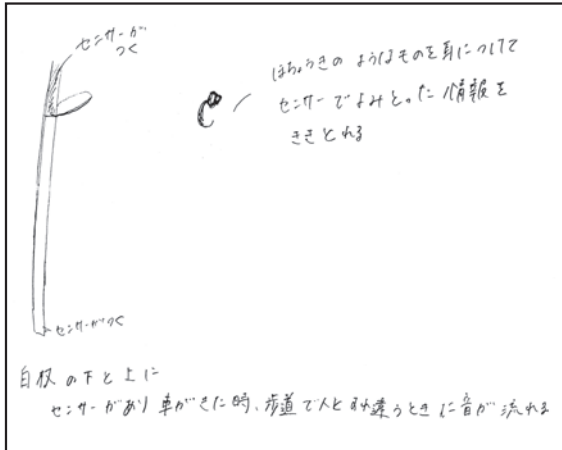 センサーが
つく
ほちょうきのようなものを耳につけて
センサーでよみとった情報を
ききとれる
センサーがつく
白杖の下と上に
センサーがあり車がきた時、歩道で人とすれ違うときに音が流れる